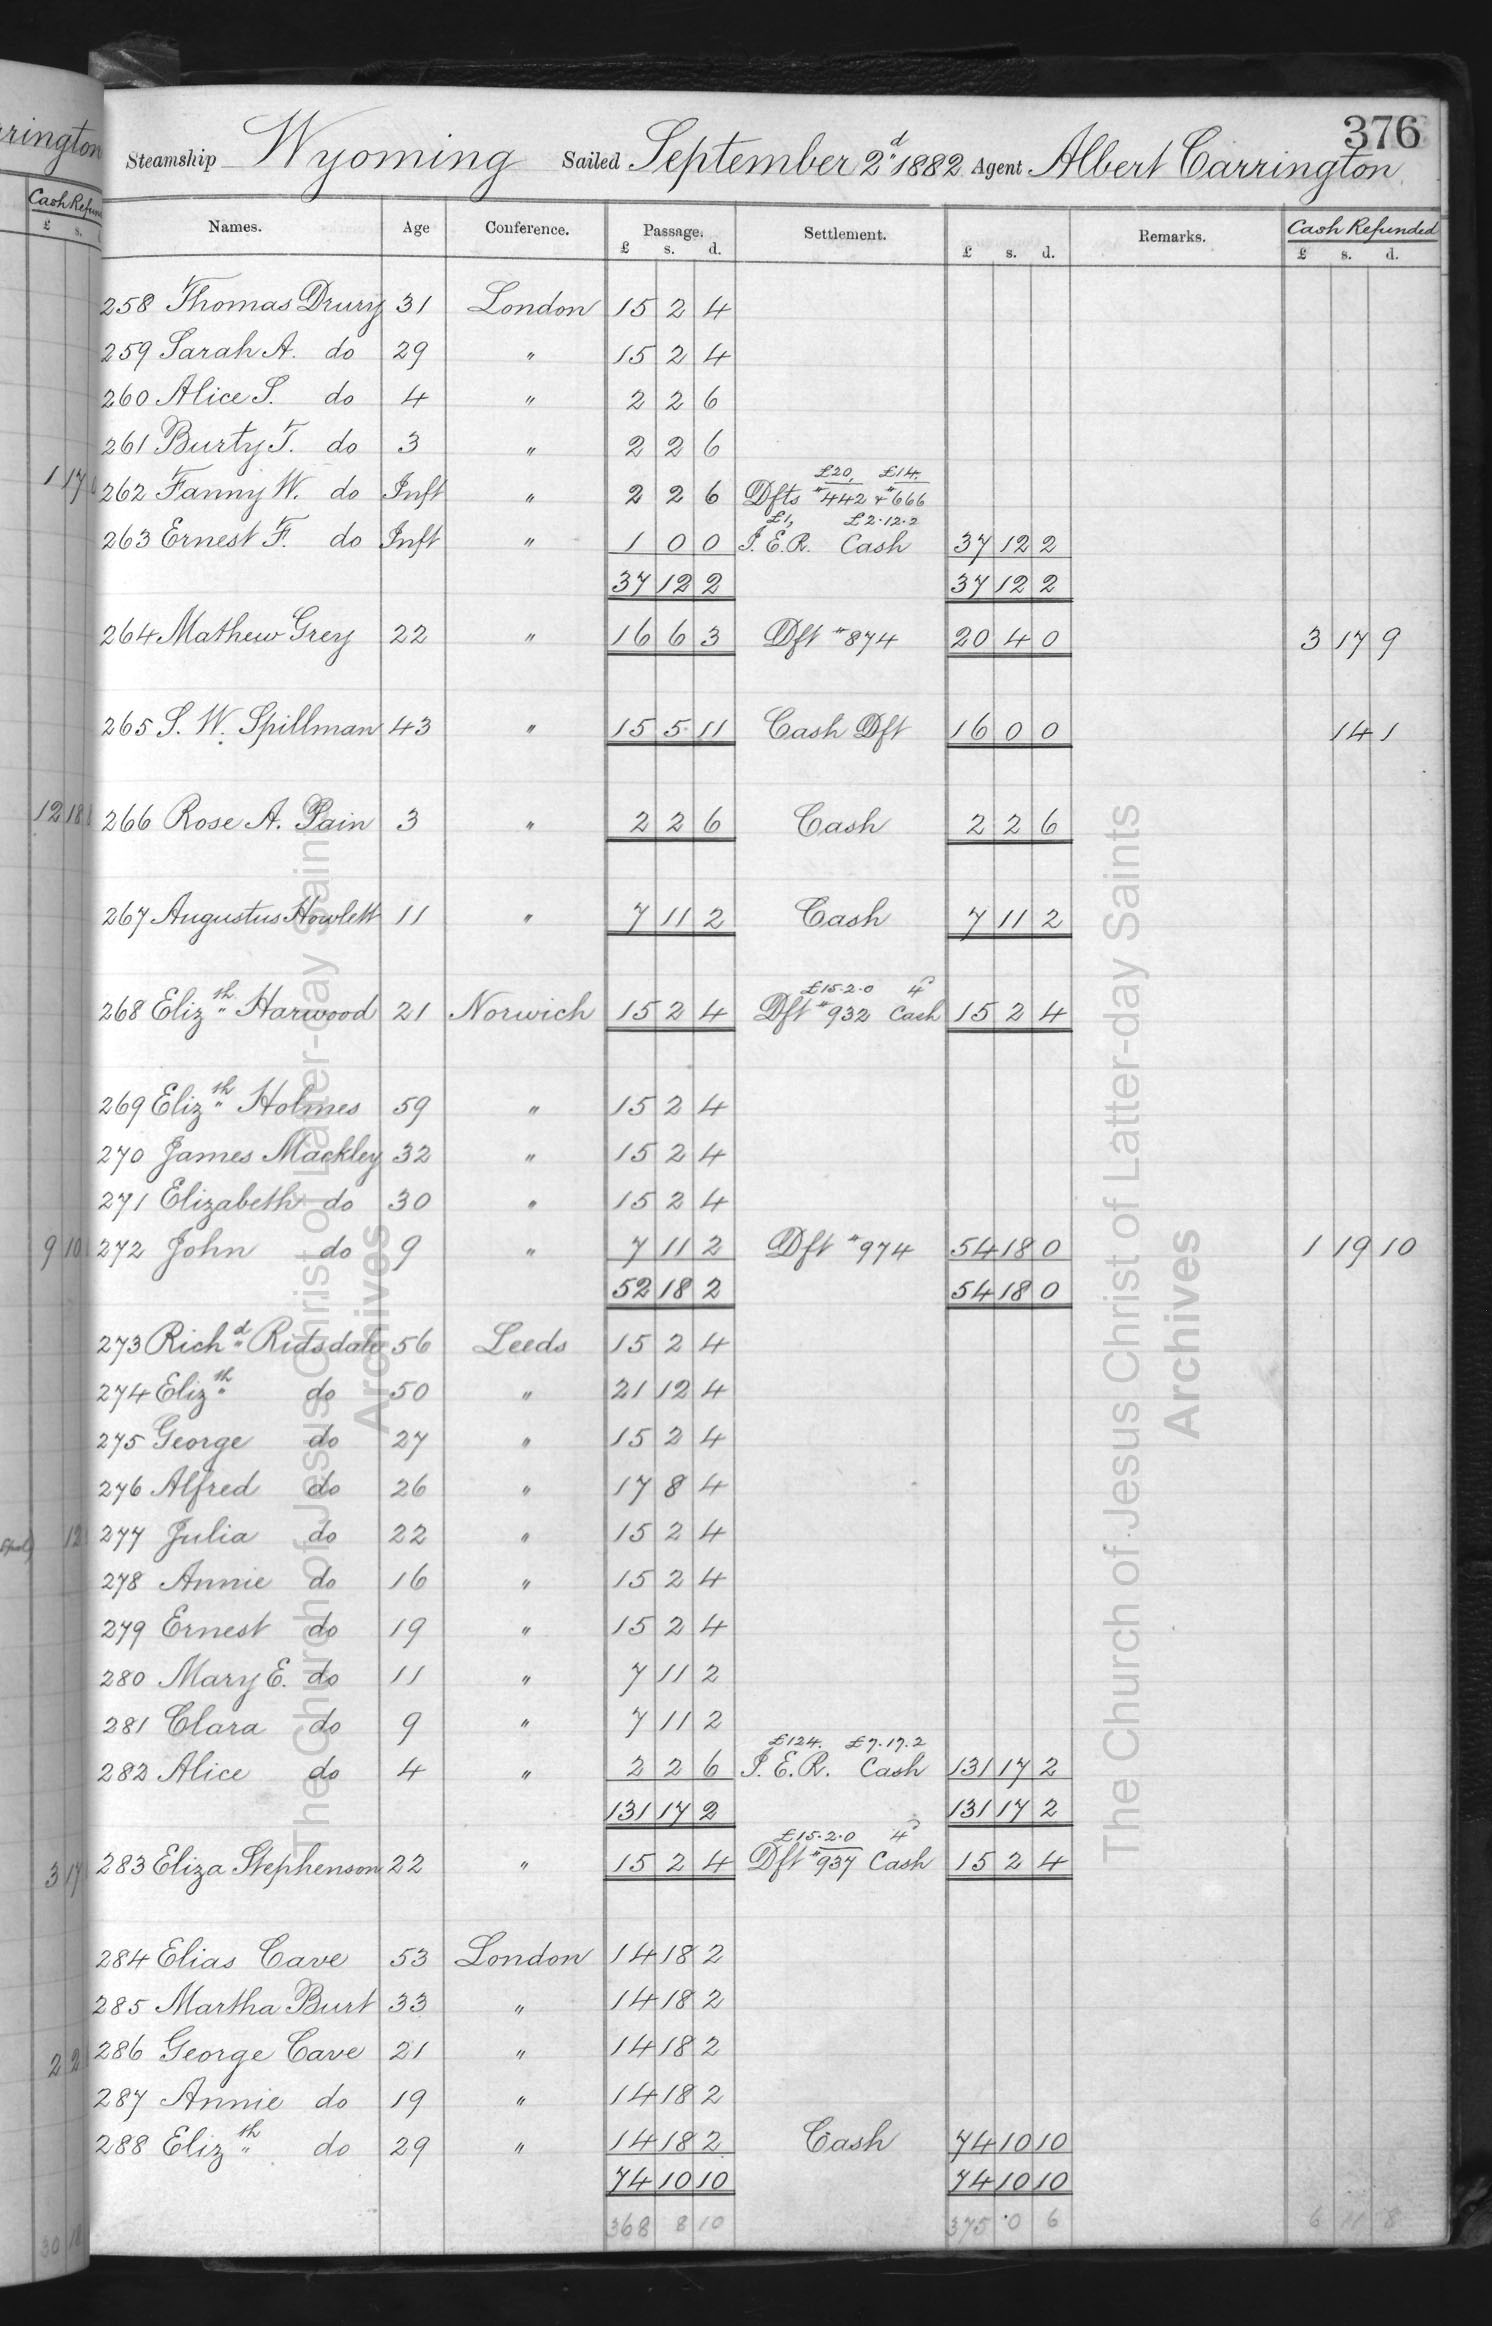 376
Steamship Wyoming Sailed September 2d 1882 Agent Albert Carrington
Names. Age Conference. Passage. £ s. d. Settlement. £ s. d. Remarks. Cash Refunded £ s. d.
258 Thomas Drury 31 London 15 2 4
259 Sarah A. do 29 " 15 2 4
260 Alice S. do 4 " 2 2 6
261 Burty T. do 3 " 2 2 6
£20, £14.
262 Fanny W. do Inft " 2 2 6 Dfts "442 & "666
£1, £2.12.2
263 Ernest F. do Inft " 1 0 0 I.E.R. Cash 37 12 2
37 12 2 37 12 2
264 Mathew Grey 22 " 16 6 3 Dft "874 20 4 0 3 17 9
265 S. W. Spillman 43 " 15 5 11 Cash Dft 16 0 0 14 1
266 Rose A. Pain 3 " 2 2 6 Cash 2 2 6
267 Augustus Howlett 11 " 7 11 2 Cash 7 11 2
£15.2.0 4d
268 Elizth Harwood 21 Norwich 15 2 4 Dft "932 Cash 15 2 4
269 Elizth Holmes 59 " 15 2 4
270 James Mackley 32 " 15 2 4
271 Elizabeth do 30 " 15 2 4
272 John do 9 " 7 11 2 Dft "974 54 18 0 1 19 10
52 18 2 54 18 0
273 Richd Ridsdale 56 Leeds 15 2 4
274 Elizth do 50 " 21 12 4
275 George do 27 " 15 2 4
276 Alfred do 26 " 17 8 4
277 Julia do 22 " 15 2 4
278 Annie do 16 " 15 2 4
279 Ernest do 19 " 15 2 4
280 Mary E. do 11 " 7 11 2
281 Clara do 9 " 7 11 2
£124. £7.17.2
282 Alice do 4 " 2 2 6 I.E.R. Cash 131 17 2
131 17 2 131 17 2
£15.2.0 4d
283 Eliza Stephenson 22 " 15 2 4 Dft "937 Cash 15 2 4
284 Elias Cave 53 London 14 18 2
285 Martha Burt 33 " 14 18 2
286 George Cave 21 " 14 18 2
287 Annie do 19 " 14 18 2
288 Elizth do 29 " 14 18 2 Cash 74 10 10
74 10 10 74 10 10
368 8 10 375 0 6 6 11 8
The Church of Jesus Christ of Latter-day Saints
Archives
The Church of Jesus Christ of Latter-day Saints
Archives
rrington
Cash Refun
£ s.
1 17
12 18
9 10
12
3 17
2 2